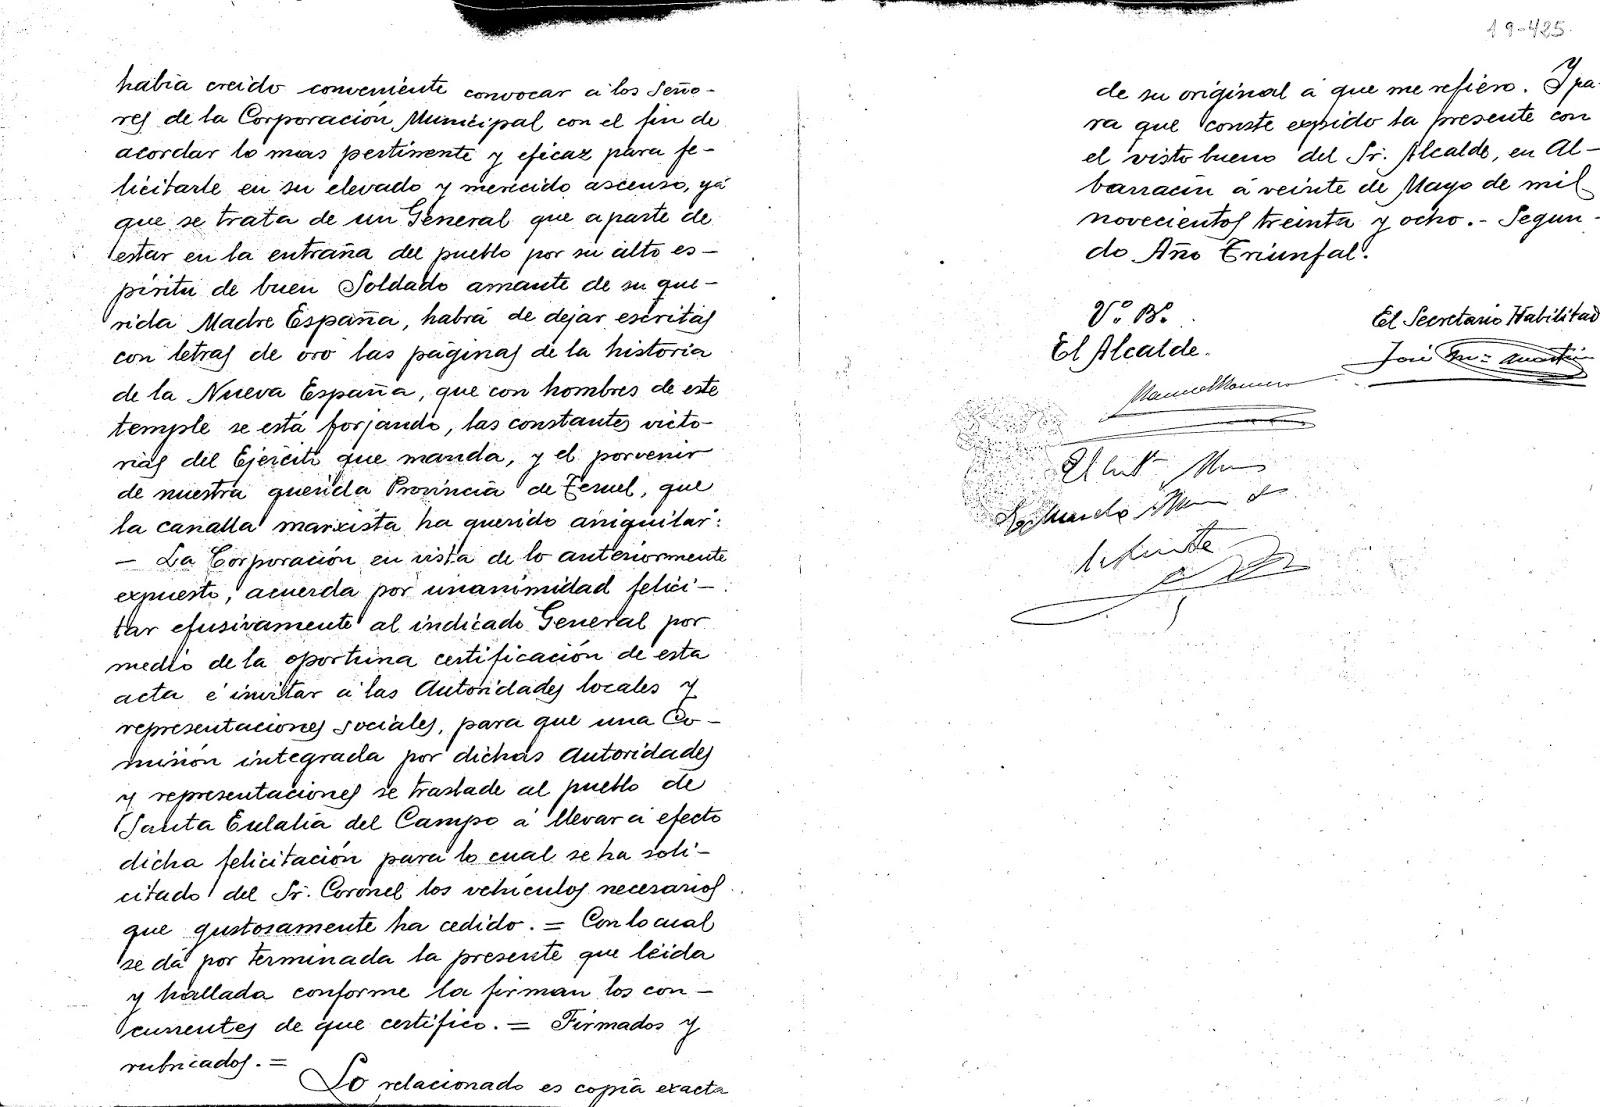 había creido conveniente convocar á los Seño-
res de la Corporación Municipal con el fin de
acordar lo mas pertinente y eficaz para fe-
licitarle en su elevado y merecido ascenso, yá
que se trata de un General que aparte de
estar en la entraña del pueblo por su alto es-
píritu de buen Soldado amante de su que-
rida Madre España, habrá de dejar escritas
con letras de oro las páginas de la historia
de la Nueva España, que con hombres de este
temple se está forjando, las constantes victo-
rias del Ejército que manda, y el porvenir
de nuestra querida Provincia de Teruel, que
la canalla marxista ha querido aniquilar:
- La Corporación en vista de lo anteriormente
expuesto, acuerda por unanimidad felici-
tar efusivamente al indicado General por
medio de la oportuna certificación de esta
acta é invitar á las Autoridades locales y
representaciones sociales, para que una Co-
misión integrada por dichas autoridades
y representaciones se traslade al pueblo de
Santa Eulalia del Campo á llevar á efecto
dicha felicitación para lo cual se ha soli-
citado del Sr. Coronel los vehículos necesarios
que gustosamente ha cedido. = Con lo cual
se dá por terminada la presente que leida
y hallada conforme la firman los con-
currentes de que certifico. = Firmados y
rubricados. =
Lo relacionado es copia exacta
19-425.
de su original á que me refiero. Y pa-
ra que conste expido la presente con
el visto bueno del Sr. Alcalde, en Al-
barracín á veinte de Mayo de mil
novecientos treinta y ocho. - Segun-
do Año Triunfal.
Vº. Bº.
El Alcalde.
El Secretario Habilitado
José Mª Martín